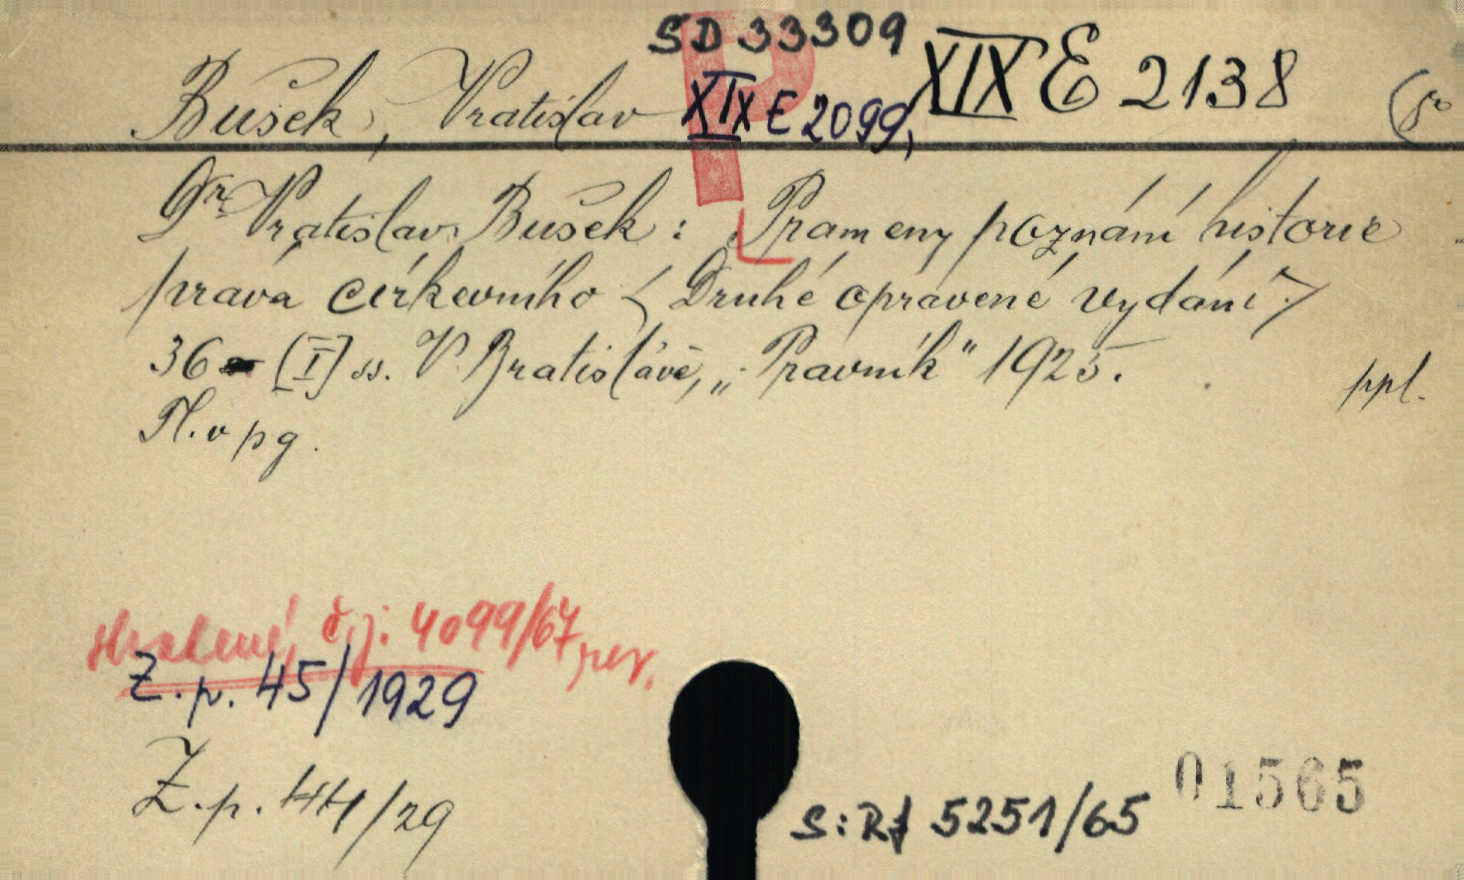 SD 33309
Bušek, Vratislav XIX E 2099, XIX E 2138
P
Dr Vratislav Bušek: Prameny poznání historie
práva církevního <Druhé opravené vydání.>
36 [I] ss. V Bratislavě, „Pravník" 1925. ppl.
Tl. v pg.
č.j. 4099/67 rev.
Z.p. 45/1929
Z.p. 44/29
S: Rf 5251/65 01565